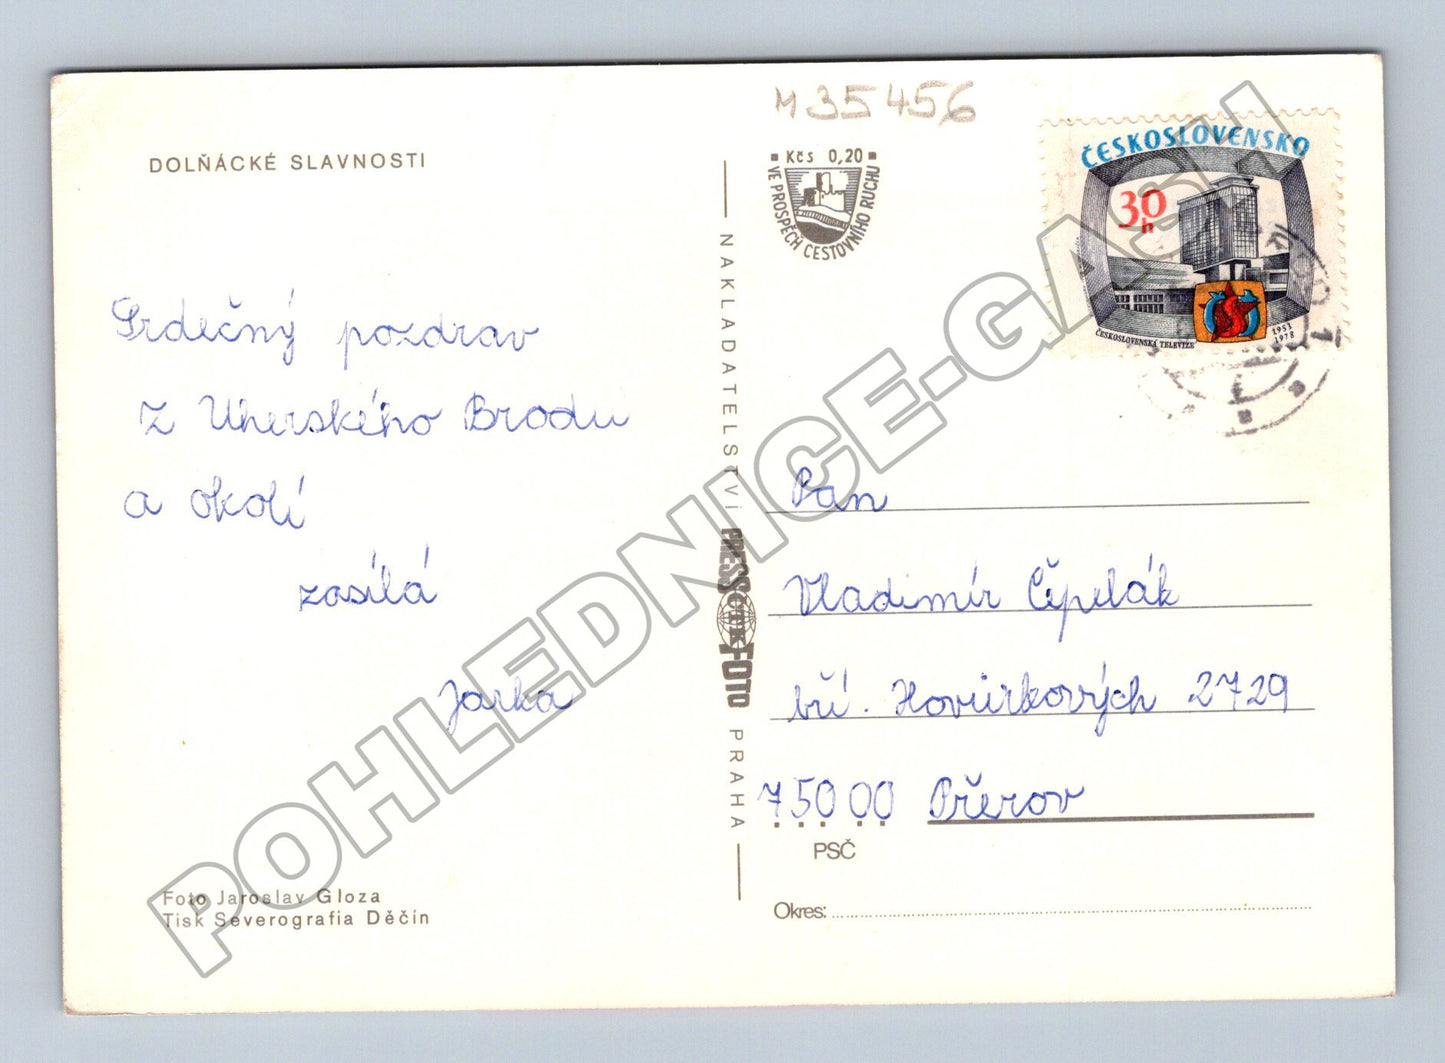 M 35456
DOLŇÁCKÉ SLAVNOSTI
Kčs 0,20
VE PROSPĚCH CESTOVNÍHO RUCHU
ČESKOSLOVENSKO
30 h
ČESKOSLOVENSKÁ TELEVIZE
1953
1978
Srdečný pozdrav
z Uherského Brodu
a okolí
zasílá
Jarka
NAKLADATELSTVÍ PRESSFOTO PRAHA
ČTK
Pan
Vladimír Čepelák
bří. Hovůrkových 2729
750 00 Přerov
PSČ
Okres:
Foto Jaroslav Gloza
Tisk Severografia Děčín
POHLEDNICE-GASH